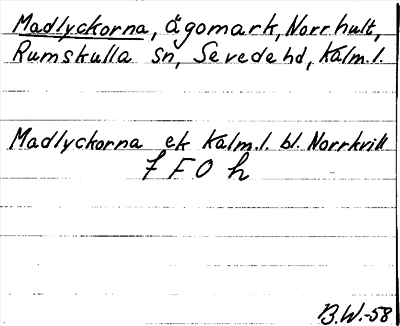 Madlyckorna, ägomark, Norrhult,
Rumskulla sn, Sevede hd, Kalm.l.
Madlyckorna ek Kalm.l. bl. Norrkvill
7 F 0 h
B.W.-58